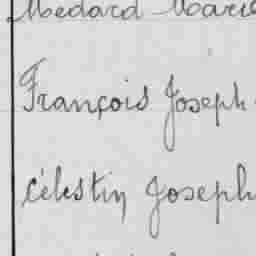 Médard Marie
François Joseph
Célestin Joseph